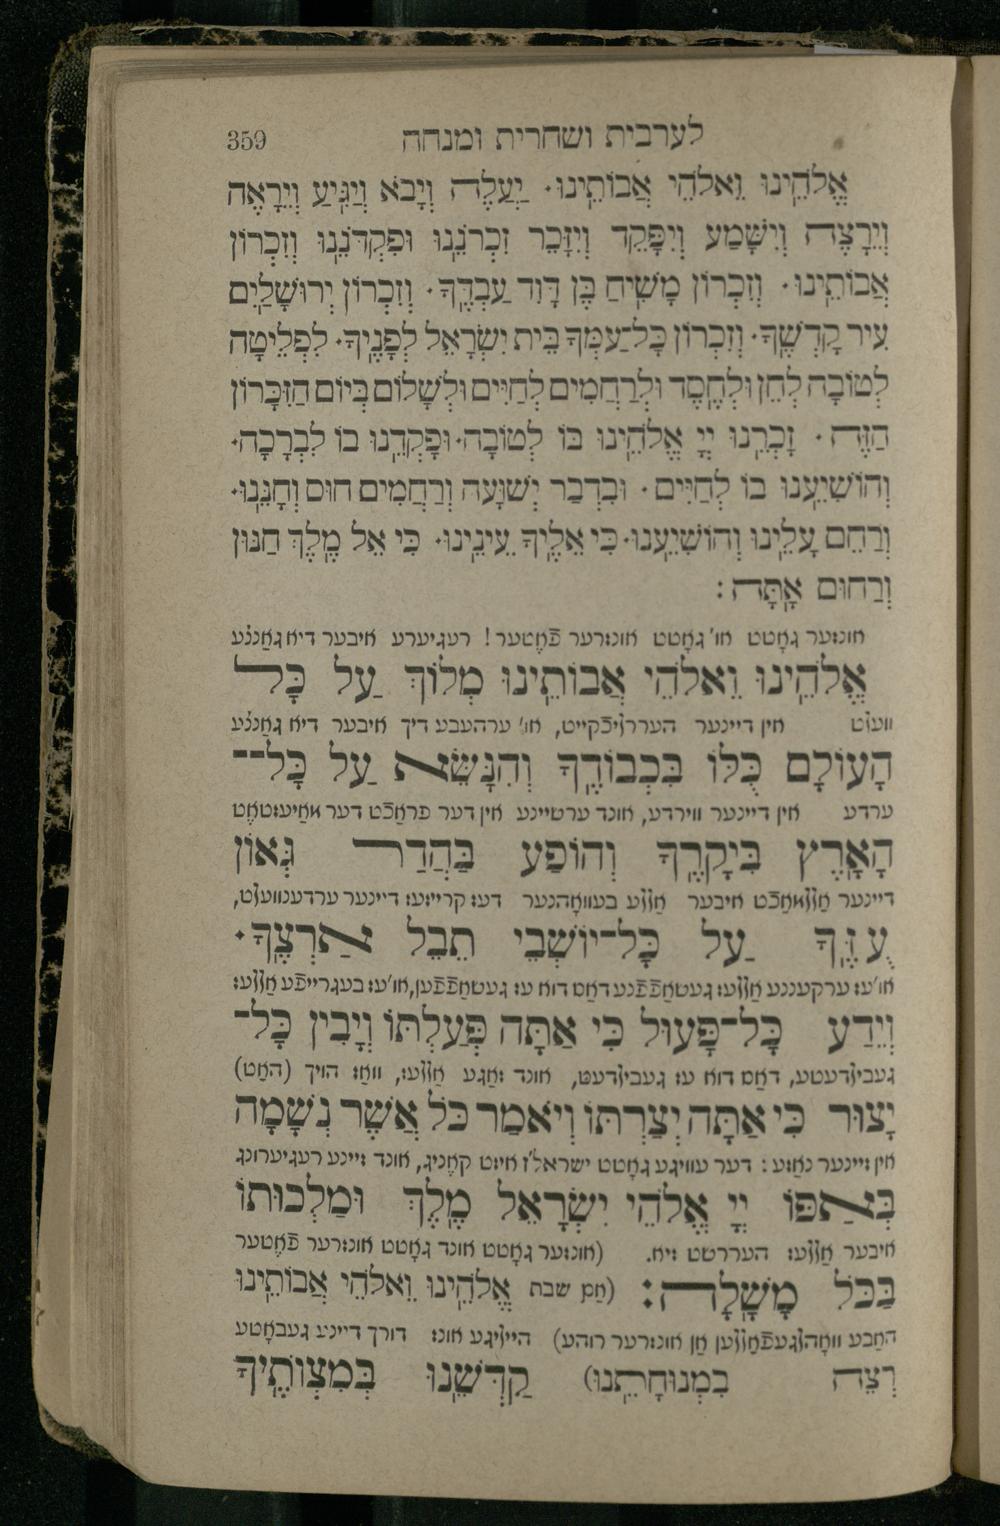 לערבית ושחרית ומנחה 359
אֱלֹהֵינוּ וֵאלֹהֵי אֲבוֹתֵינוּ· יַעֲלֶה וְיָבֹא וְיַגִּיעַ וְיֵרָאֶה
וְיֵרָצֶה וְיִשָּׁמַע וְיִפָּקֵד וְיִזָּכֵר זִכְרֹנֵנוּ וּפִקְדֹּנֵנוּ וְזִכְרוֹן
אֲבוֹתֵינוּ· וְזִכְרוֹן מָשִׁיחַ בֶּן דָּוִד עַבְדֶּךָ· וְזִכְרוֹן יְרוּשָׁלַיִם
עִיר קָדְשֶׁךָ· וְזִכְרוֹן כָּל־עַמְּךָ בֵּית יִשְׂרָאֵל לְפָנֶיךָ· לִפְלֵיטָה
לְטוֹבָה לְחֵן וּלְחֶסֶד וּלְרַחֲמִים לְחַיִּים וּלְשָׁלוֹם בְּיוֹם הַזִּכָּרוֹן
הַזֶּה· זָכְרֵנוּ יְיָ אֱלֹהֵינוּ בּוֹ לְטוֹבָה· וּפָקְדֵנוּ בוֹ לִבְרָכָה·
וְהוֹשִׁיעֵנוּ בוֹ לְחַיִּים· וּבִדְבַר יְשׁוּעָה וְרַחֲמִים חוּס וְחָנֵּנוּ·
וְרַחֵם עָלֵינוּ וְהוֹשִׁיעֵנוּ· כִּי אֵלֶיךָ עֵינֵינוּ· כִּי אֵל מֶלֶךְ חַנּוּן
וְרַחוּם אָתָּה:
אונזער גאָטט או' גאָטט אונזרער פֿאָטער! רעגיערע איבער דיא גאַננע
אֱלֹהֵינוּ וֵאלֹהֵי אֲבוֹתֵינוּ מְלוֹךְ עַל כָּל
וועלט אין דיינער העררליכֿקייט, או' ערהעבע דיך איבער דיא גאַננע
הָעוֹלָם כֻּלּוֹ בִּכְבוֹדֶךָ וְהִנָּשֵׂא עַל כָּל־
ערדע אין דיינער ווירדע, אונד ערשיינע אין דער פראַכֿט דער מאַיעזטאָט
הָאָרֶץ בִּיקָרֶךָ וְהוֹפַע בַּהֲדַר גְּאוֹן
דיינער אַללמאַכֿט איבער אַללע בעוואָהנער דעז קרייזעז דיינער ערדענוועלט,
עֻזֶּךָ עַל כָּל־יוֹשְׁבֵי תֵבֵל אַרְצֶךָ·
או'עז ערקעננע אַללעז געשאַפֿפֿנע דאס דוא עז געשאַפֿפֿען, או'עז בעגרייפֿע אַללעז
וְיֵדַע כָּל־פָּעוּל כִּי אַתָּה פְעַלְתּוֹ וְיָבִין כָּל־
געבילדעטע, דאַס דוא עז געבילדעט, אונד זאַגע אַללעז, וואַז הויך (האַט)
יָצוּר כִּי אַתָּה יְצַרְתּוֹ וְיֹאמַר כֹּל אֲשֶׁר נְשָׁמָה
אין זיינער נאַזע: דער עוויגע גאָטט ישראל'ז איזט קאָניג, אונד זיינע רעגיערונג
בְּאַפּוֹ יְיָ אֱלֹהֵי יִשְׂרָאֵל מֶלֶךְ וּמַלְכוּתוֹ
איבער אַללעז העררשט זיא. (אונזער גאָטט אונד גאָטט אונזרער פֿאָטער
בַּכֹּל מָשָׁלָה: (אַם שבת אֱלֹהֵינוּ וֵאלֹהֵי אֲבוֹתֵינוּ
האַבע וואָהלגעפֿאַללען אַן אונזרער רוהע) הייליגע אונז דורך דיינע געבאָטע
רְצֵה בִמְנוּחָתֵנוּ) קַדְּשֵׁנוּ בְּמִצְוֹתֶיךָ